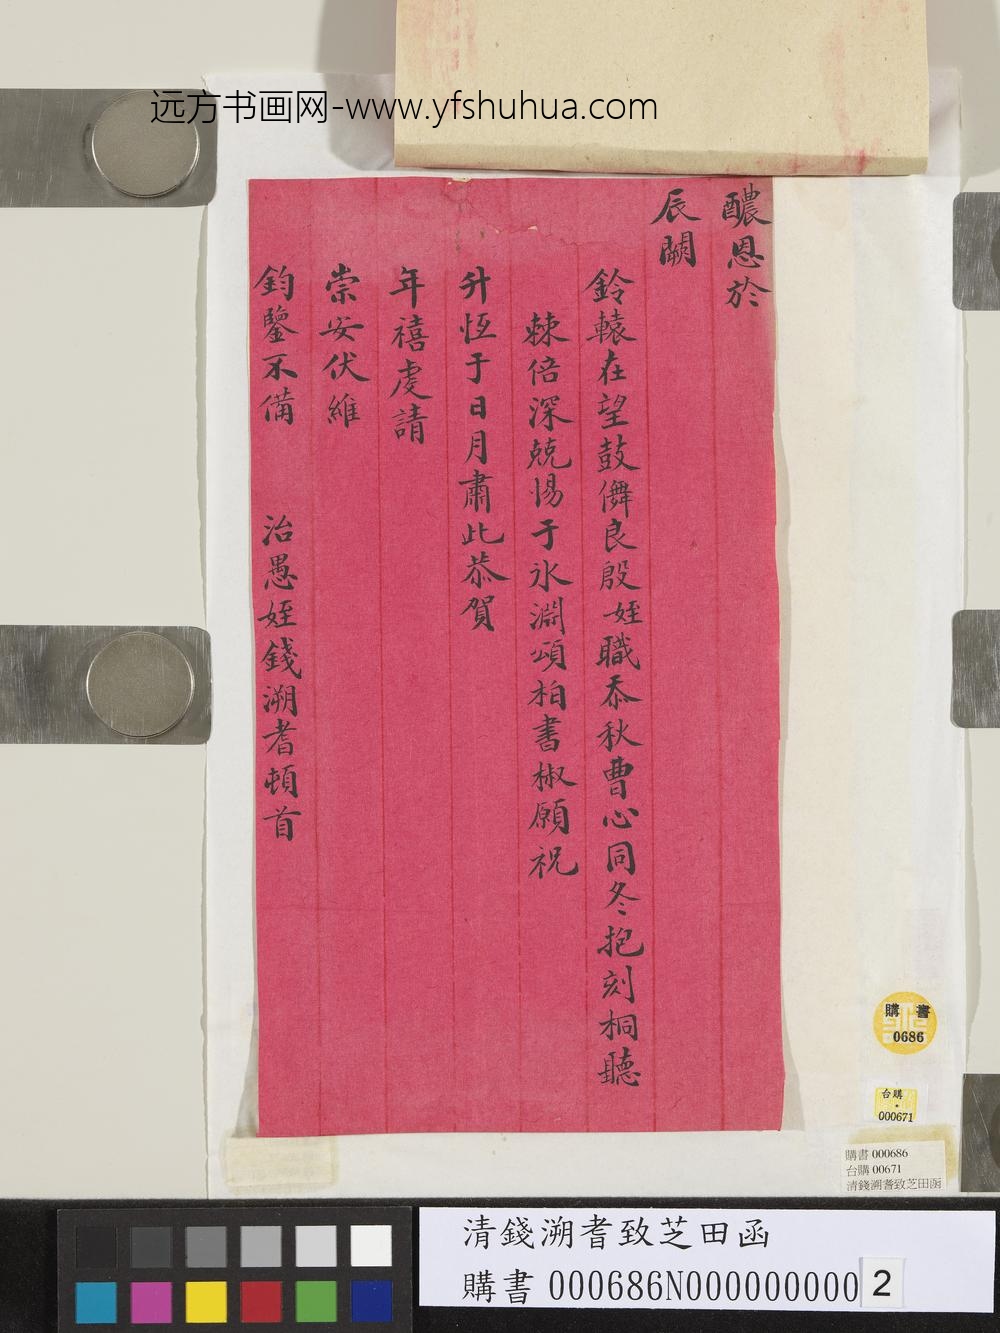 远方书画网-www.yfshuhua.com
醲恩於
辰闕
鈴轅在望鼓儛良殷姪職忝秋曹心同冬抱刻桐聽
棘倍深兢惕于冰淵頌柏書椒願祝
升恆于日月肅此恭賀
年禧虔請
崇安伏維
鈞鑒不備 治愚姪錢溯耆頓首
購書
0686
台購
000671
購書 000686
台購 00671
清錢溯耆致芝田函
清錢溯耆致芝田函
購書 000686N000000000 2